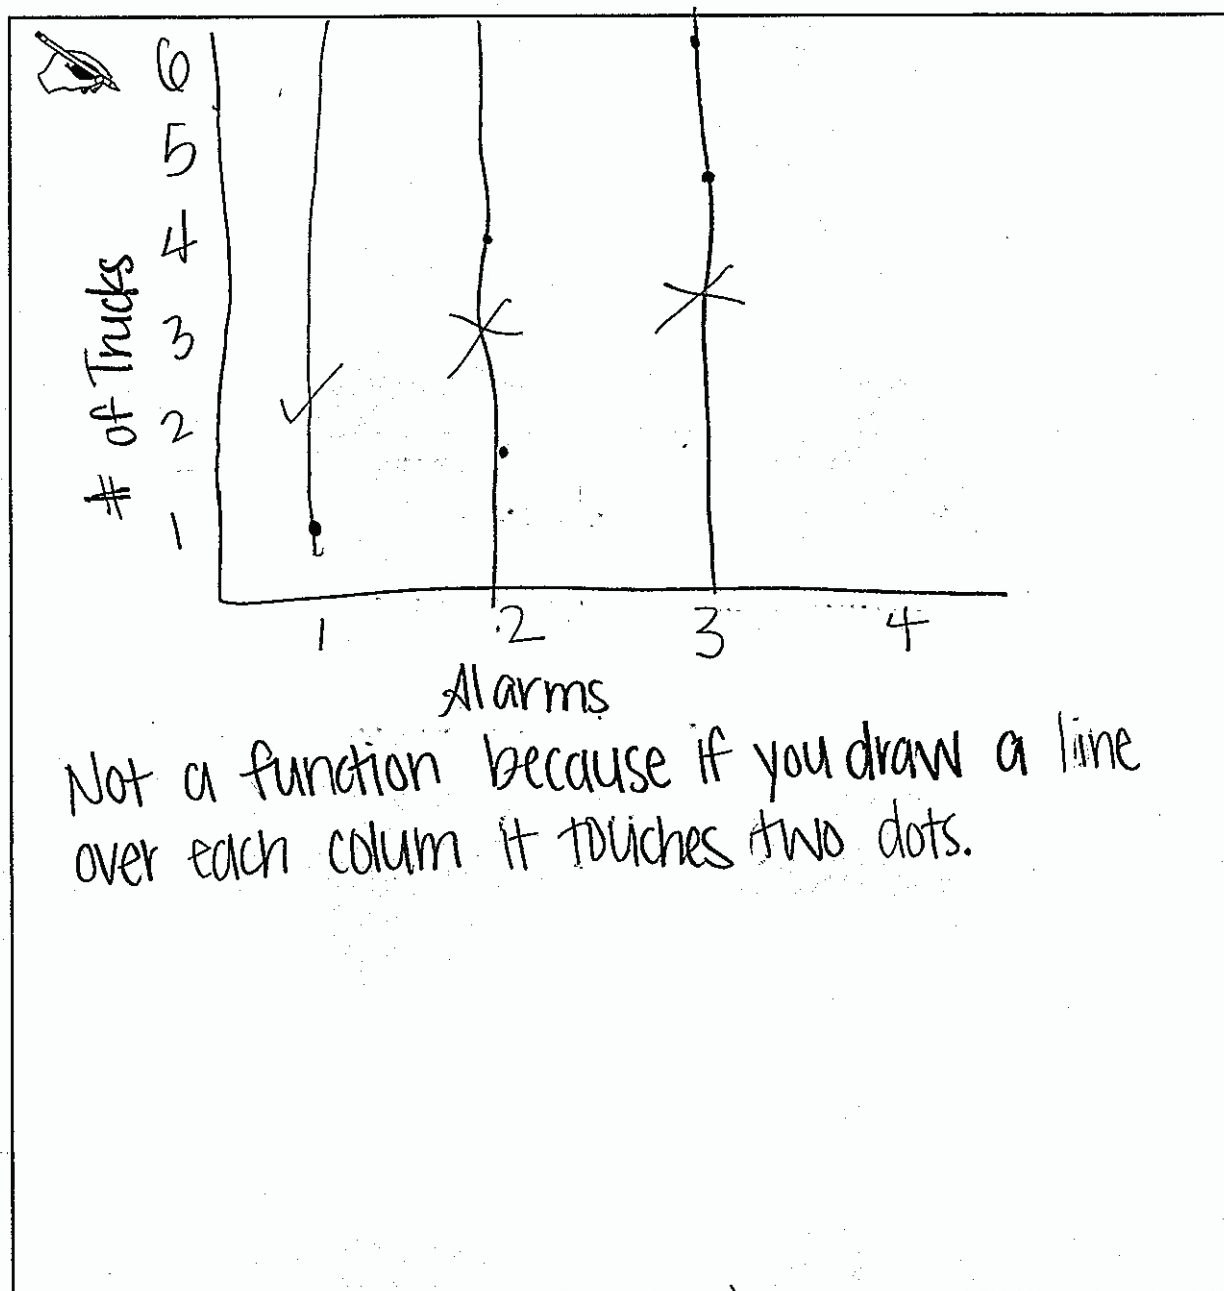 6
5
4
3
2
1
# of Trucks
1 2 3 4
Alarms
Not a function because if you draw a line
over each colum it touches two dots.